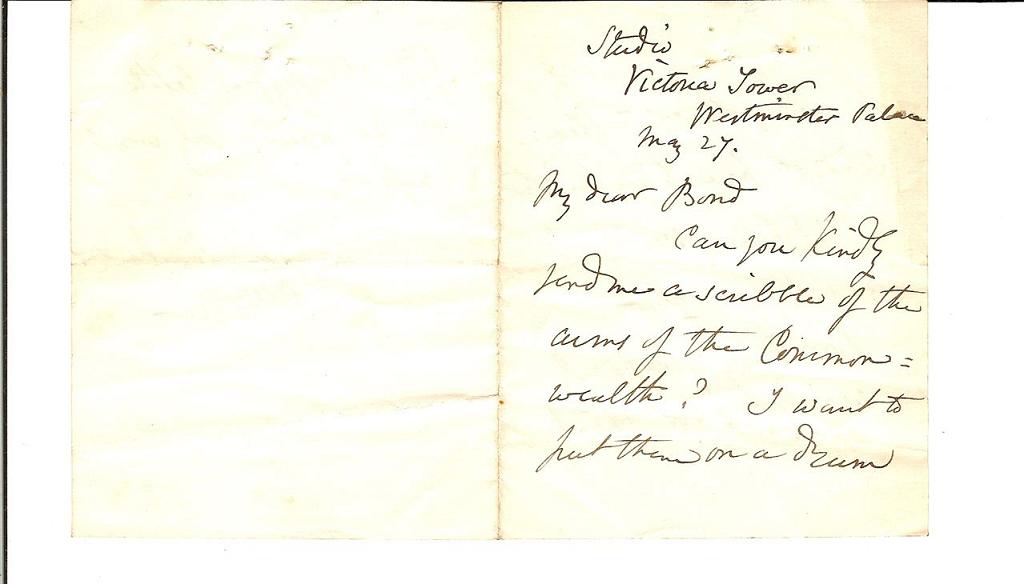 Studio
Victoria Tower
Westminster Palace
May 27.
My dear Bond
Can you Kindly
send me a scribble of the
arms of the Common=
wealth? I want to
put them on a drum